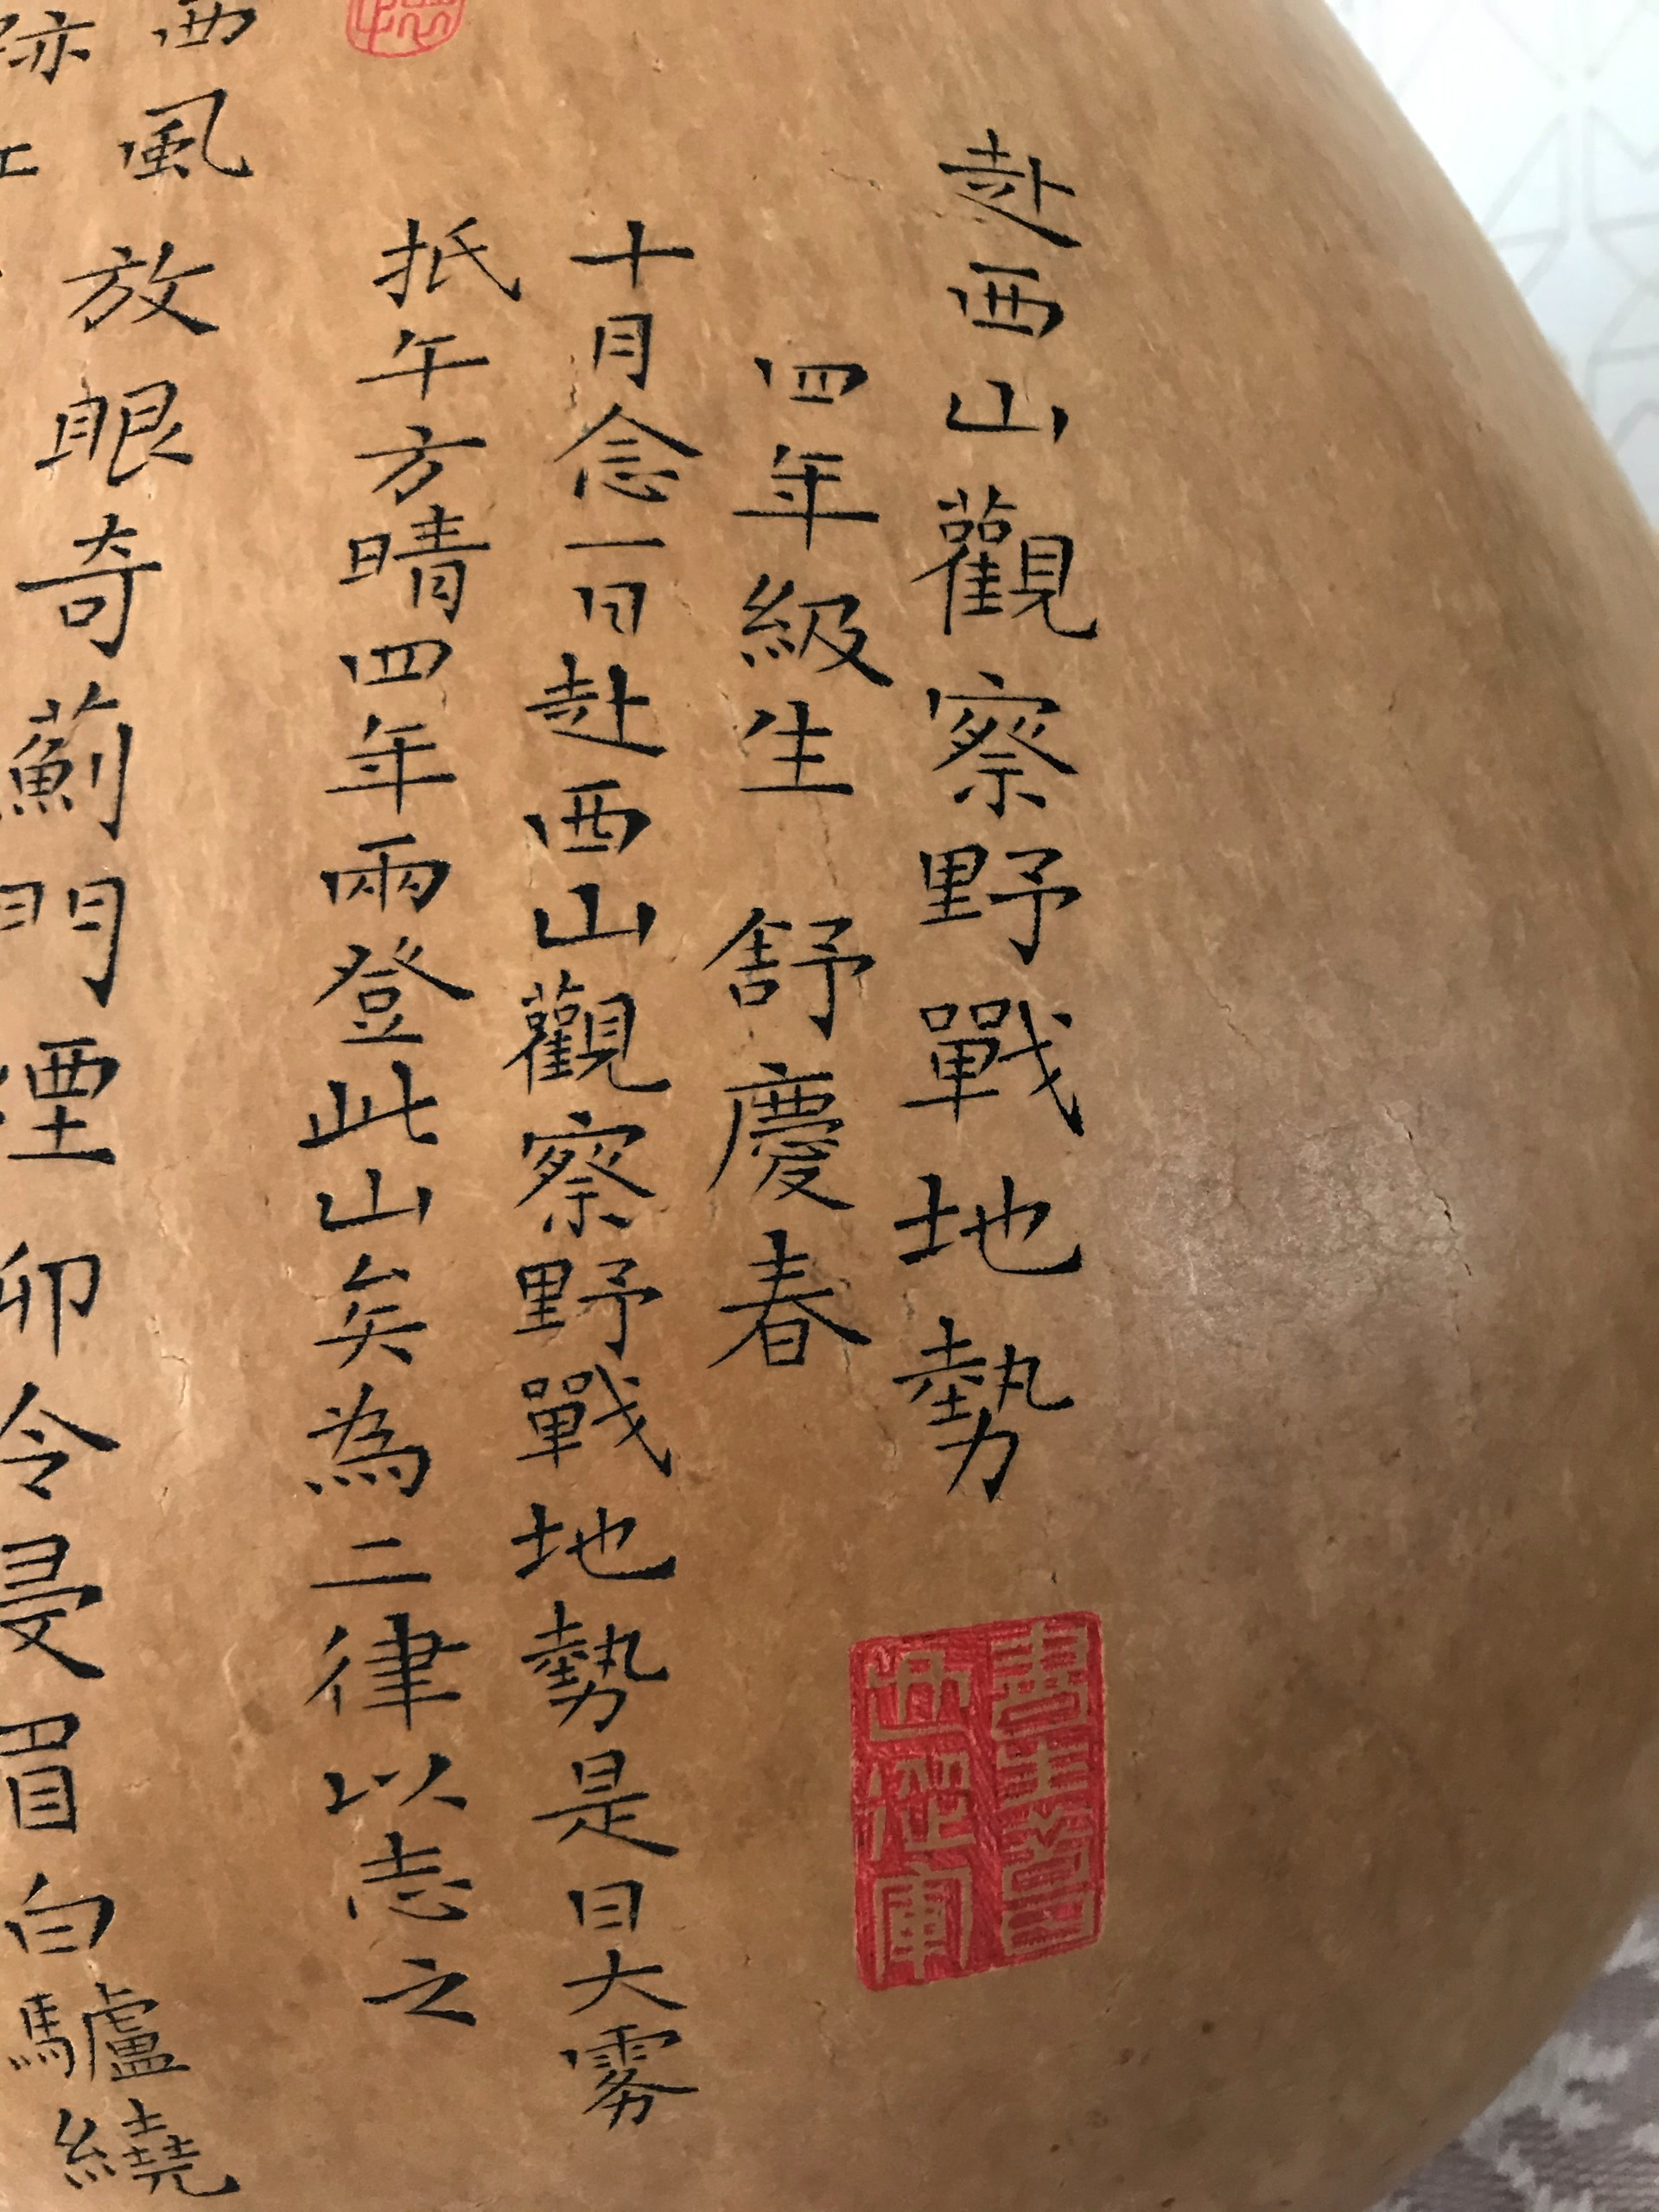 赴西山觀察野戰地勢
四年級生 舒慶春
十月念一日赴西山觀察野戰地勢是日大雾
抵午方晴四年兩登此山矣為二律以志之
西風放眼奇薊門煙卯令曼眉白驢繞
跡